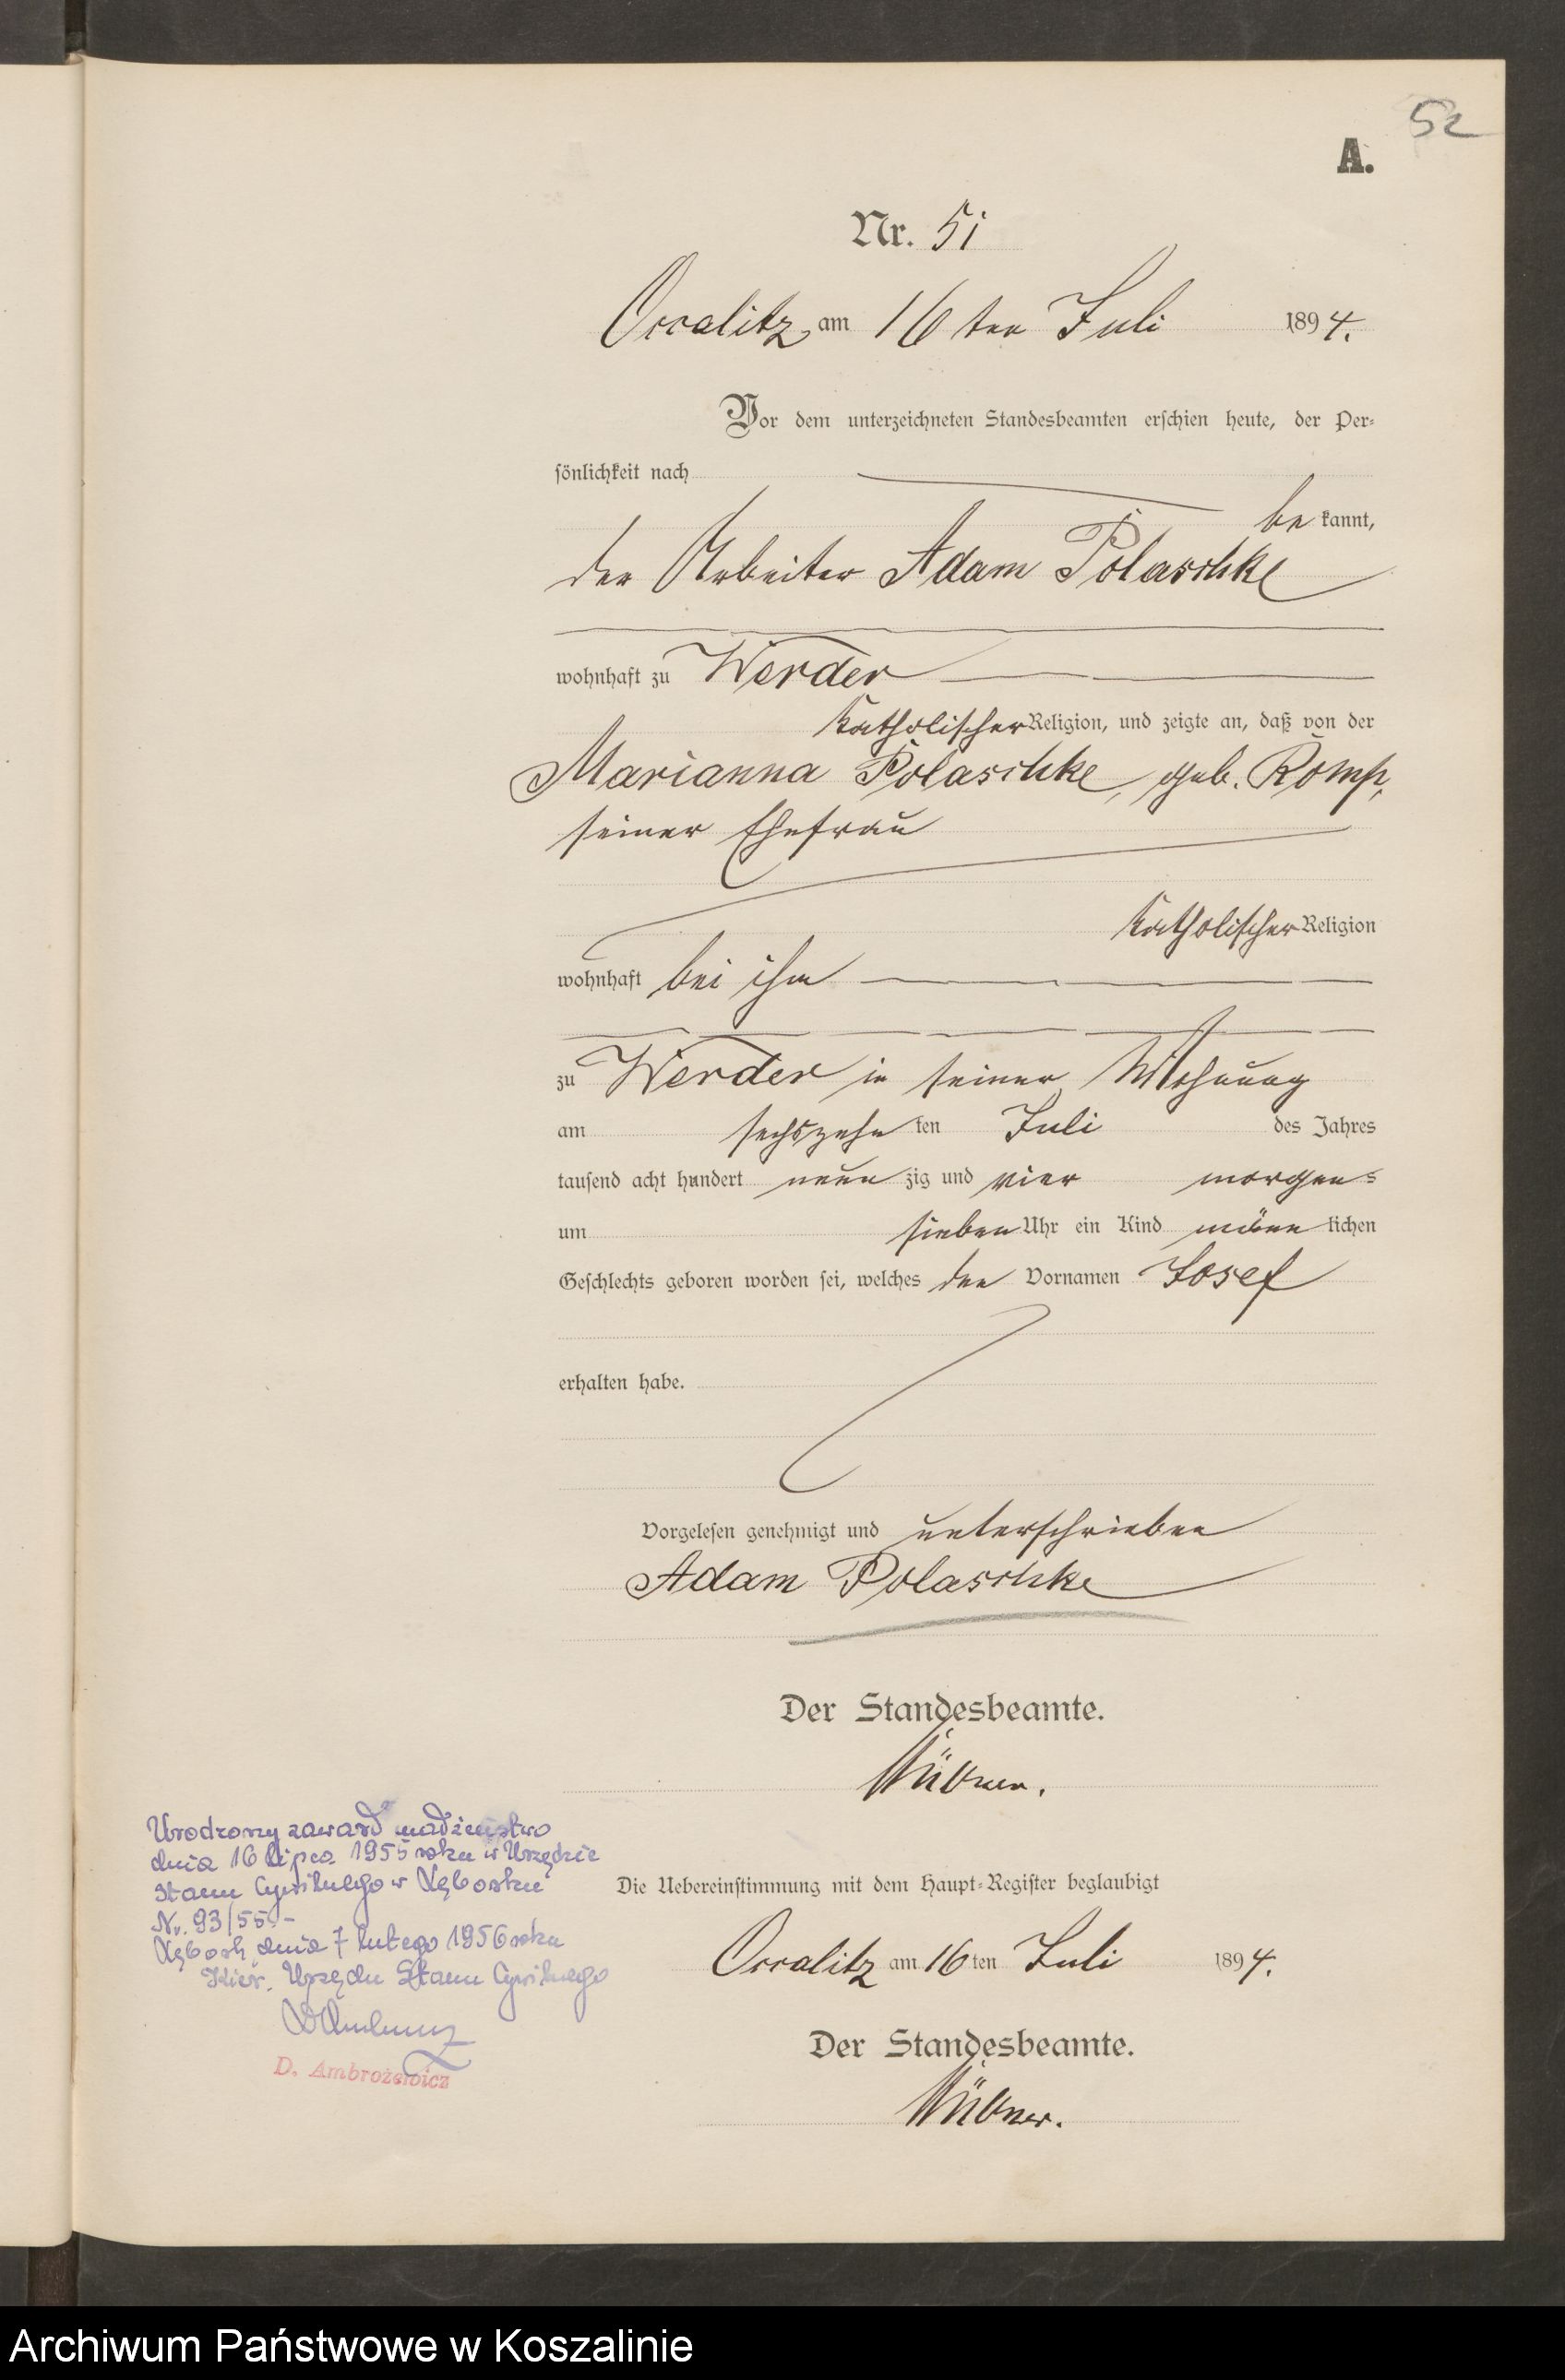 52
A.
Nr. 51
Occalitz am 16ten Juli 1894.
Vor dem unterzeichneten Standesbeamten erschien heute, der Per-
sönlichkeit nach
be kannt,
der Arbeiter Adam Polaschke
wohnhaft zu Werder
katholischer Religion, und zeigte an, daß von der
Marianna Polaschke, geb. Romp,
seiner Ehefrau
katholischer Religion
wohnhaft bei ihm
zu Werder in seiner Wohnung
am sechszehn ten Juli des Jahres
tausend acht hundert neun zig und vier morgens
um sieben Uhr ein Kind männ lichen
Geschlechts geboren worden sei, welches den Vornamen Josef
erhalten habe.
Vorgelesen genehmigt und unterschrieben
Adam Polaschke
Der Standesbeamte.
Die Uebereinstimmung mit dem Haupt-Register beglaubigt
Occalitz am 16ten Juli 1894.
Der Standesbeamte.
Urodzony zawarł małżeństwo
dnia 16 lipca 1955 roku w Urzędzie
Stanu Cywilnego w Lęborku
Nr. 93/55.-
Lębork dnia 7 lutego 1956 roku
Kier. Urzędu Stanu Cywilnego
D. Ambrożewicz
Archiwum Państwowe w Koszalinie